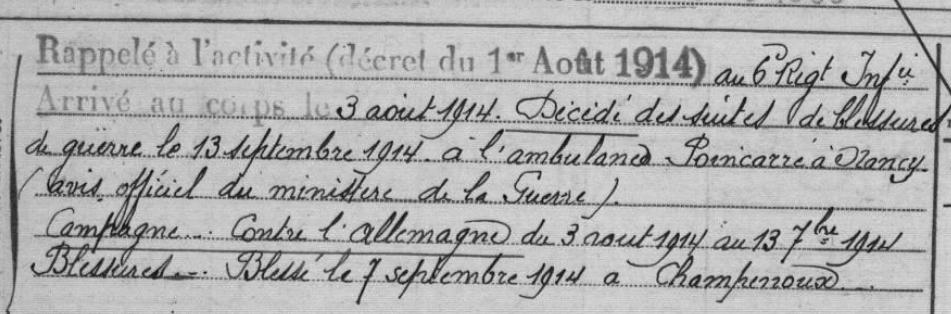 Rappelé à l'activité (décret du 1er Août 1914) au 6e Rigt Infie
Arrivé au corps le 3 aout 1914. Décédé des suites de blessures
de guerre le 13 septembre 1914. à l'ambulance Poincarré à Nancy.
(avis officiel du ministère de la Guerre).
Campagne... Contre l'allemagne du 3 aout 1914 au 13 7bre 1914
Blessures... Blessé le 7 septembre 1914 a Champenoux...